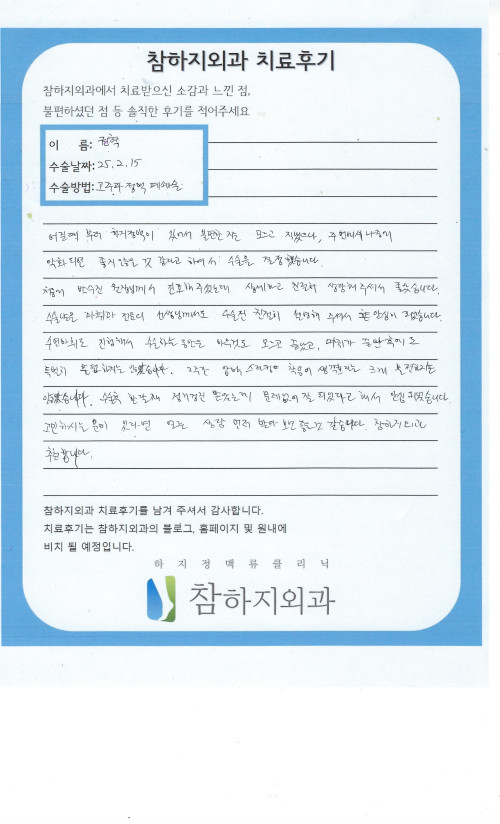 참하지외과 치료후기
참하지외과에서 치료받으신 소감과 느낀 점,
불편하셨던 점 등 솔직한 후기를 적어주세요
이 름: 권혁
수술날짜: 25.2.15
수술방법: 고주파 정맥 폐쇄술
어릴때 부터 하지정맥이 있어서 불편한지는 모르고 지냈으나, 주변에서 나중에
악화되면 좋지 않을 것 같다고 하여서 수술을 결정했습니다.
처음에 반수진 원장님께서 진료해주셨는데 상세하고 친절히 설명해주셔서 좋았습니다.
수술당일 마취과 진료의 선생님께서도 수술전 친절히 설명해 주셔서 안심이 되었습니다.
수면마취로 진행해서 수술하는 동안은 아무것도 모르고 끝났고, 마취가 끝난 후에도
특별히 불편하지는 않았습니다. 2주간 압박 스타킹 착용이 생각보다는 크게 불편하지는
않았습니다. 수술후 한달째 정기검진 받았는데 문제없이 잘 되었다고 해서 안심 되었습니다.
고민하시는 분이 있다면 오는 상담 먼저 받아 보면 좋을것 같습니다. 참하지외과
추천합니다.
참하지외과 치료후기를 남겨 주셔서 감사합니다.
치료후기는 참하지외과의 블로그, 홈페이지 및 원내에
비치 될 예정입니다.
하지정맥류클리닉
참하지외과